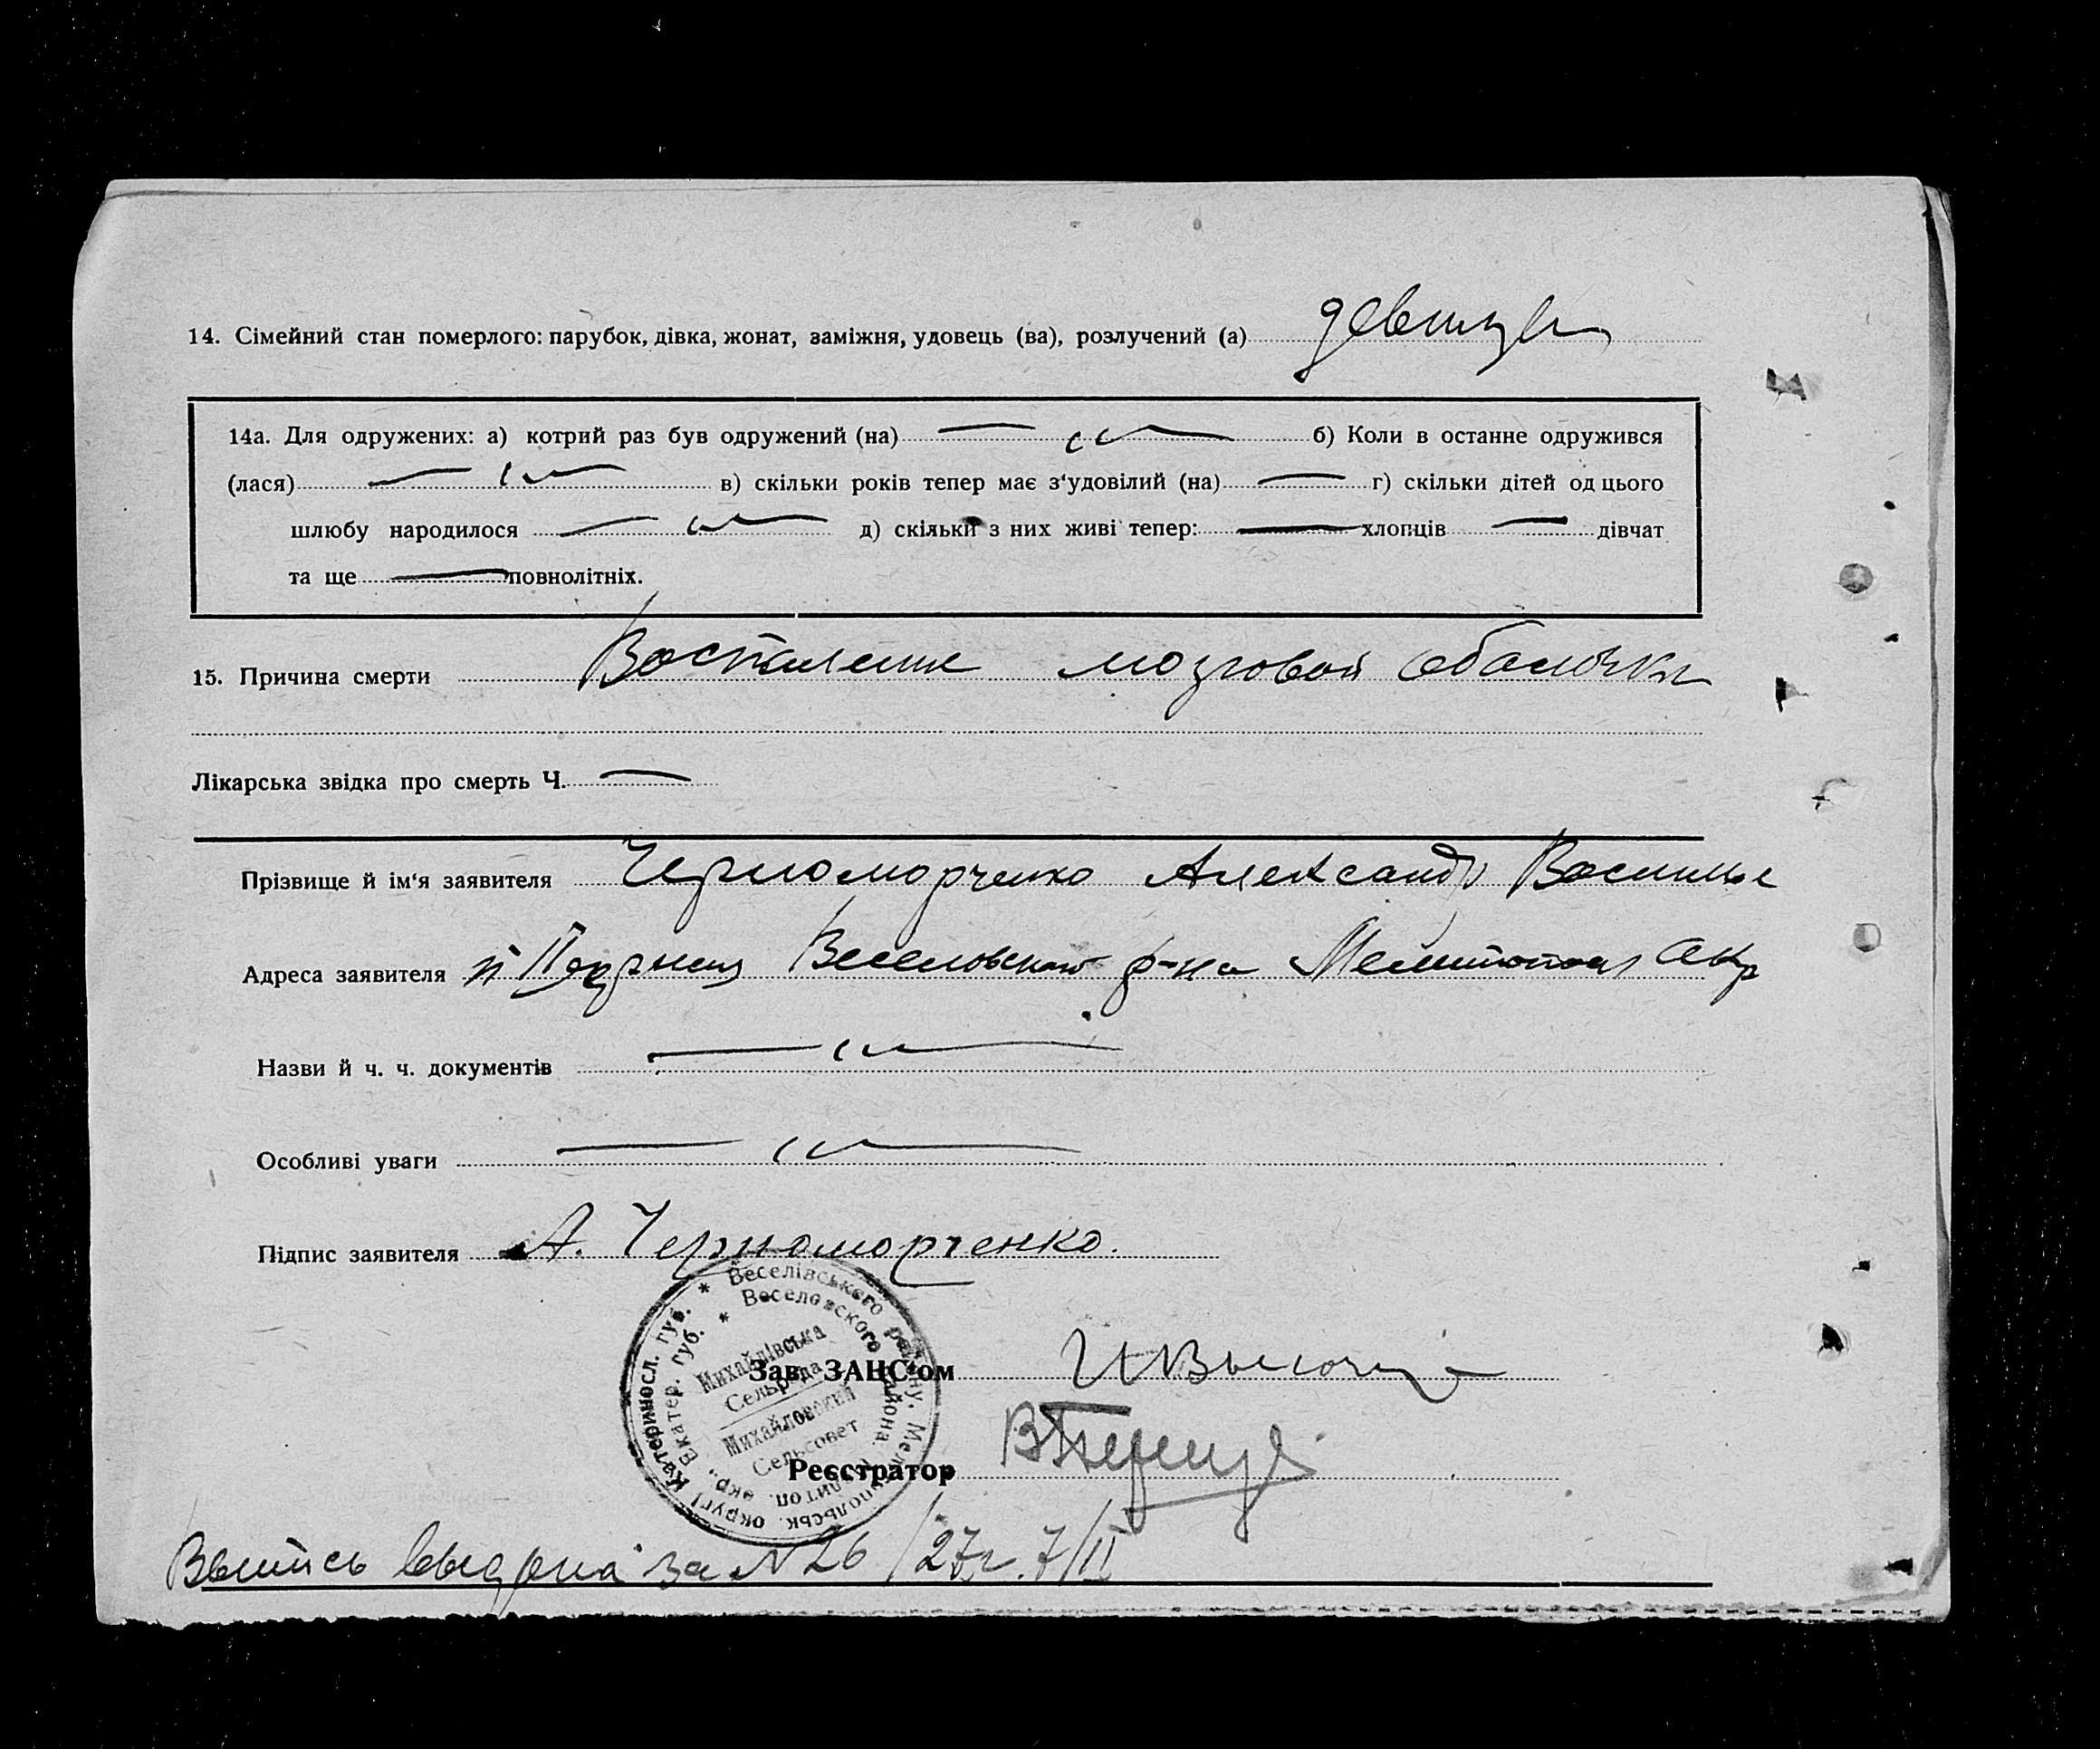 14. Сімейний стан померлого: парубок, дівка, жонат, заміжня, удовець (ва), розлучений (а) девица
14а. Для одружених: а) котрий раз був одружений (на) б) Коли в останне одружився
(лася) в) скільки років тепер має з'удовілий (на) г) скільки дітей од цього
шлюбу народилося д) скільки з них живі тепер: хлопців дівчат
та ще повнолітніх.
15. Причина смерти Воспаление мозговой оболочки
Лікарська звідка про смерть Ч.
Прізвище й ім'я заявителя Черноморченко Александр Василье
Адреса заявителя Веселовского р-на Мелитопол окр
Назви й ч. ч. документів
Особливі уваги
Підпис заявителя А. Черноморченко.
* Веселівського району, Мелітопольськ. округі Катериносл. губ.
* Веселовского района. Мелитоп. окр., Екатер. губ.
Михайлівська
Сельрада
Михайловский
Сельсовет
Зав. ЗАЦС'ом
Реєстратор
Выпись выдана за № 26/27г. 7/II